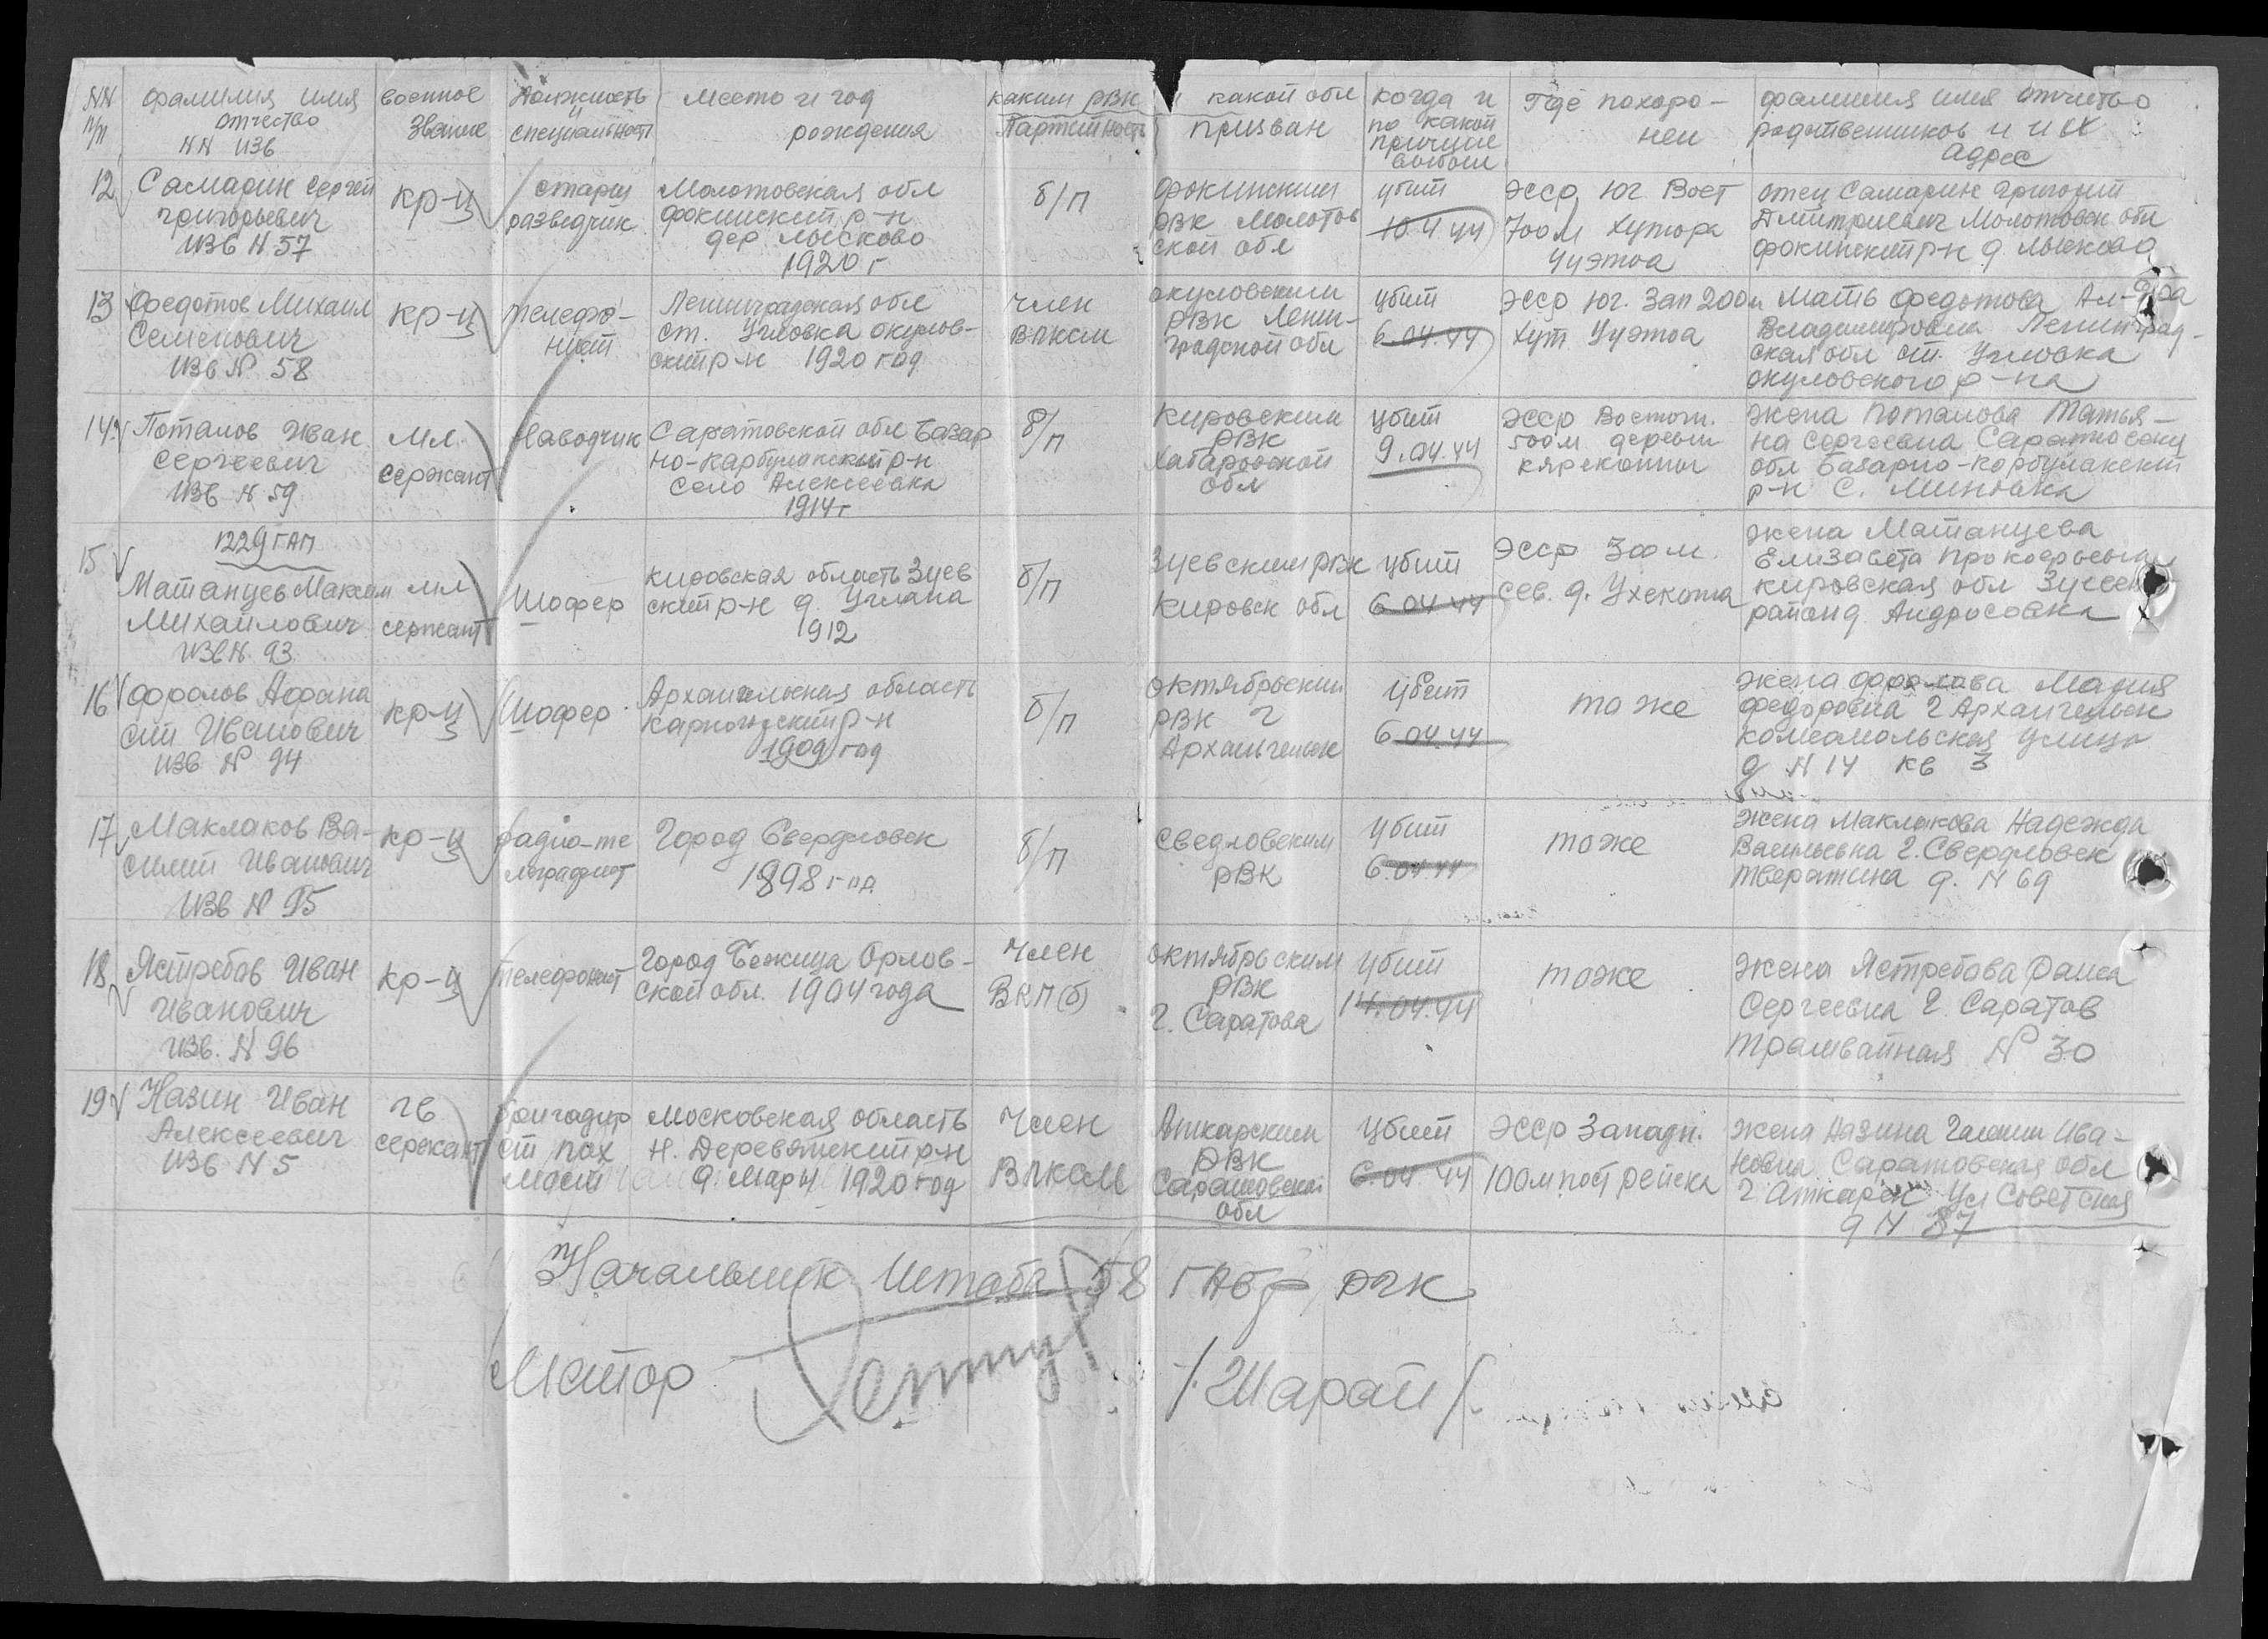 NN п/п
фамилия имя
отчество
NN изв
военное
звание
должность
и
специальность
место и год
рождения
каким РВК
Партийность
и какой обл
призван
когда и
по какой
причине
выбыл
Где похоро-
нен
фамилия имя отчество
родственников и их
адрес
12 Самарин Сергей
григорьевич
изв N 57
кр-ц
старш
разведчик
Молотовская обл
фокинский р-н
дер лысково
1920 г
б/п
фокинским
РВК Молотов
ской обл
убит
10 4 44
ЭССР Юг Вост
700 м хутора
Уузтоа
отец Самарин григорий
Дмитриевич Молотовск обл
фокинский р-н д лысково
13 Федотов Михаил
Семенович
изв N 58
кр-ц
телефо-
нист
Ленинградская обл
ст. Угловка окулов-
ский р-н 1920 год
член
ВЛКСМ
окуловским
РВК Ленин-
градской обл
убит
6.04.44
ЭССР Юг. Зап 200 м
хут Уузтоа
Мать Федотова Ал-дра
Владимировна Ленинград-
ская обл ст. Угловка
окуловского р-на
14 Потапов Иван
Сергеевич
изв N 59
мл.
сержант
Наводчик
Саратовской обл Базар
но-карбулакский р-н
село Алексеевка
1914 г
б/п
Кировским
РВК
Хабаровской
обл
убит
9.04.44
ЭССР Восточн.
500 м деревни
кяреконны
жена Потапова Татья-
на Сергеевна Саратовской
обл Базарно-Карбулакский
р-н с.
1229 ГАП
15
Матанцев Максим
Михайлович
изв N. 93
мл
сержант
Шофер
кировская область Зуев
ский р-н д. Углана
1912
б/п
Зуевским РВК
Кировск обл
убит
6 04 44
ЭССР 300 м.
сев. д. Ухекота
жена Матанцева
Елизавета Прокофьевна
кировская обл Зуевск
район д. Андросовка
16 Фролов Афана
сий Иванович
изв N 94
кр-ц
Шофер
Архангельская область
Карпогорский р-н
1909 год
б/п
октябрьским
РВК г
Архангельск
убит
6 04.44
то же
жена Фролова Мария
федоровна г Архангельск
комсомольская улица
д N 14 кв 3
17 Маклаков Ва-
силий Иванович
изв N 95
кр-ц
радио-те
леграфист
Город Свердловск
1898 год
б/п
сведловским
РВК
убит
6.04.44
тоже
жена Маклакова Надежда
Васильевна г. Свердловск
тверитина д. N 69
18 Ястребов Иван
Иванович
изв. N 96
кр-ц
телефонист
город Бежица Орлов-
ской обл. 1904 года
член
ВКП(б)
октябрьским
РВК
г. Саратова
убит
14.04.44
тоже
жена Ястребова Раиса
Сергеевна г. Саратов
трамвайная N 30
19 Назин Иван
Алексеевич
изв N 5
гв
сержант
бригадир
ст пах
маст
Московская область
Н. Деревянский р-н
д Мары 1920 год
Член
ВЛКСМ
Аткарским
РВК
Саратовской
обл
убит
6.04.44
ЭССР Западн.
100 м пост рейска
жена Назина Галина Ива-
новна Саратовская обл
г Аткарск ул Советская
д N 87
Начальник Штаба 58 ГАбр РГК
Майор
/Шарай/.